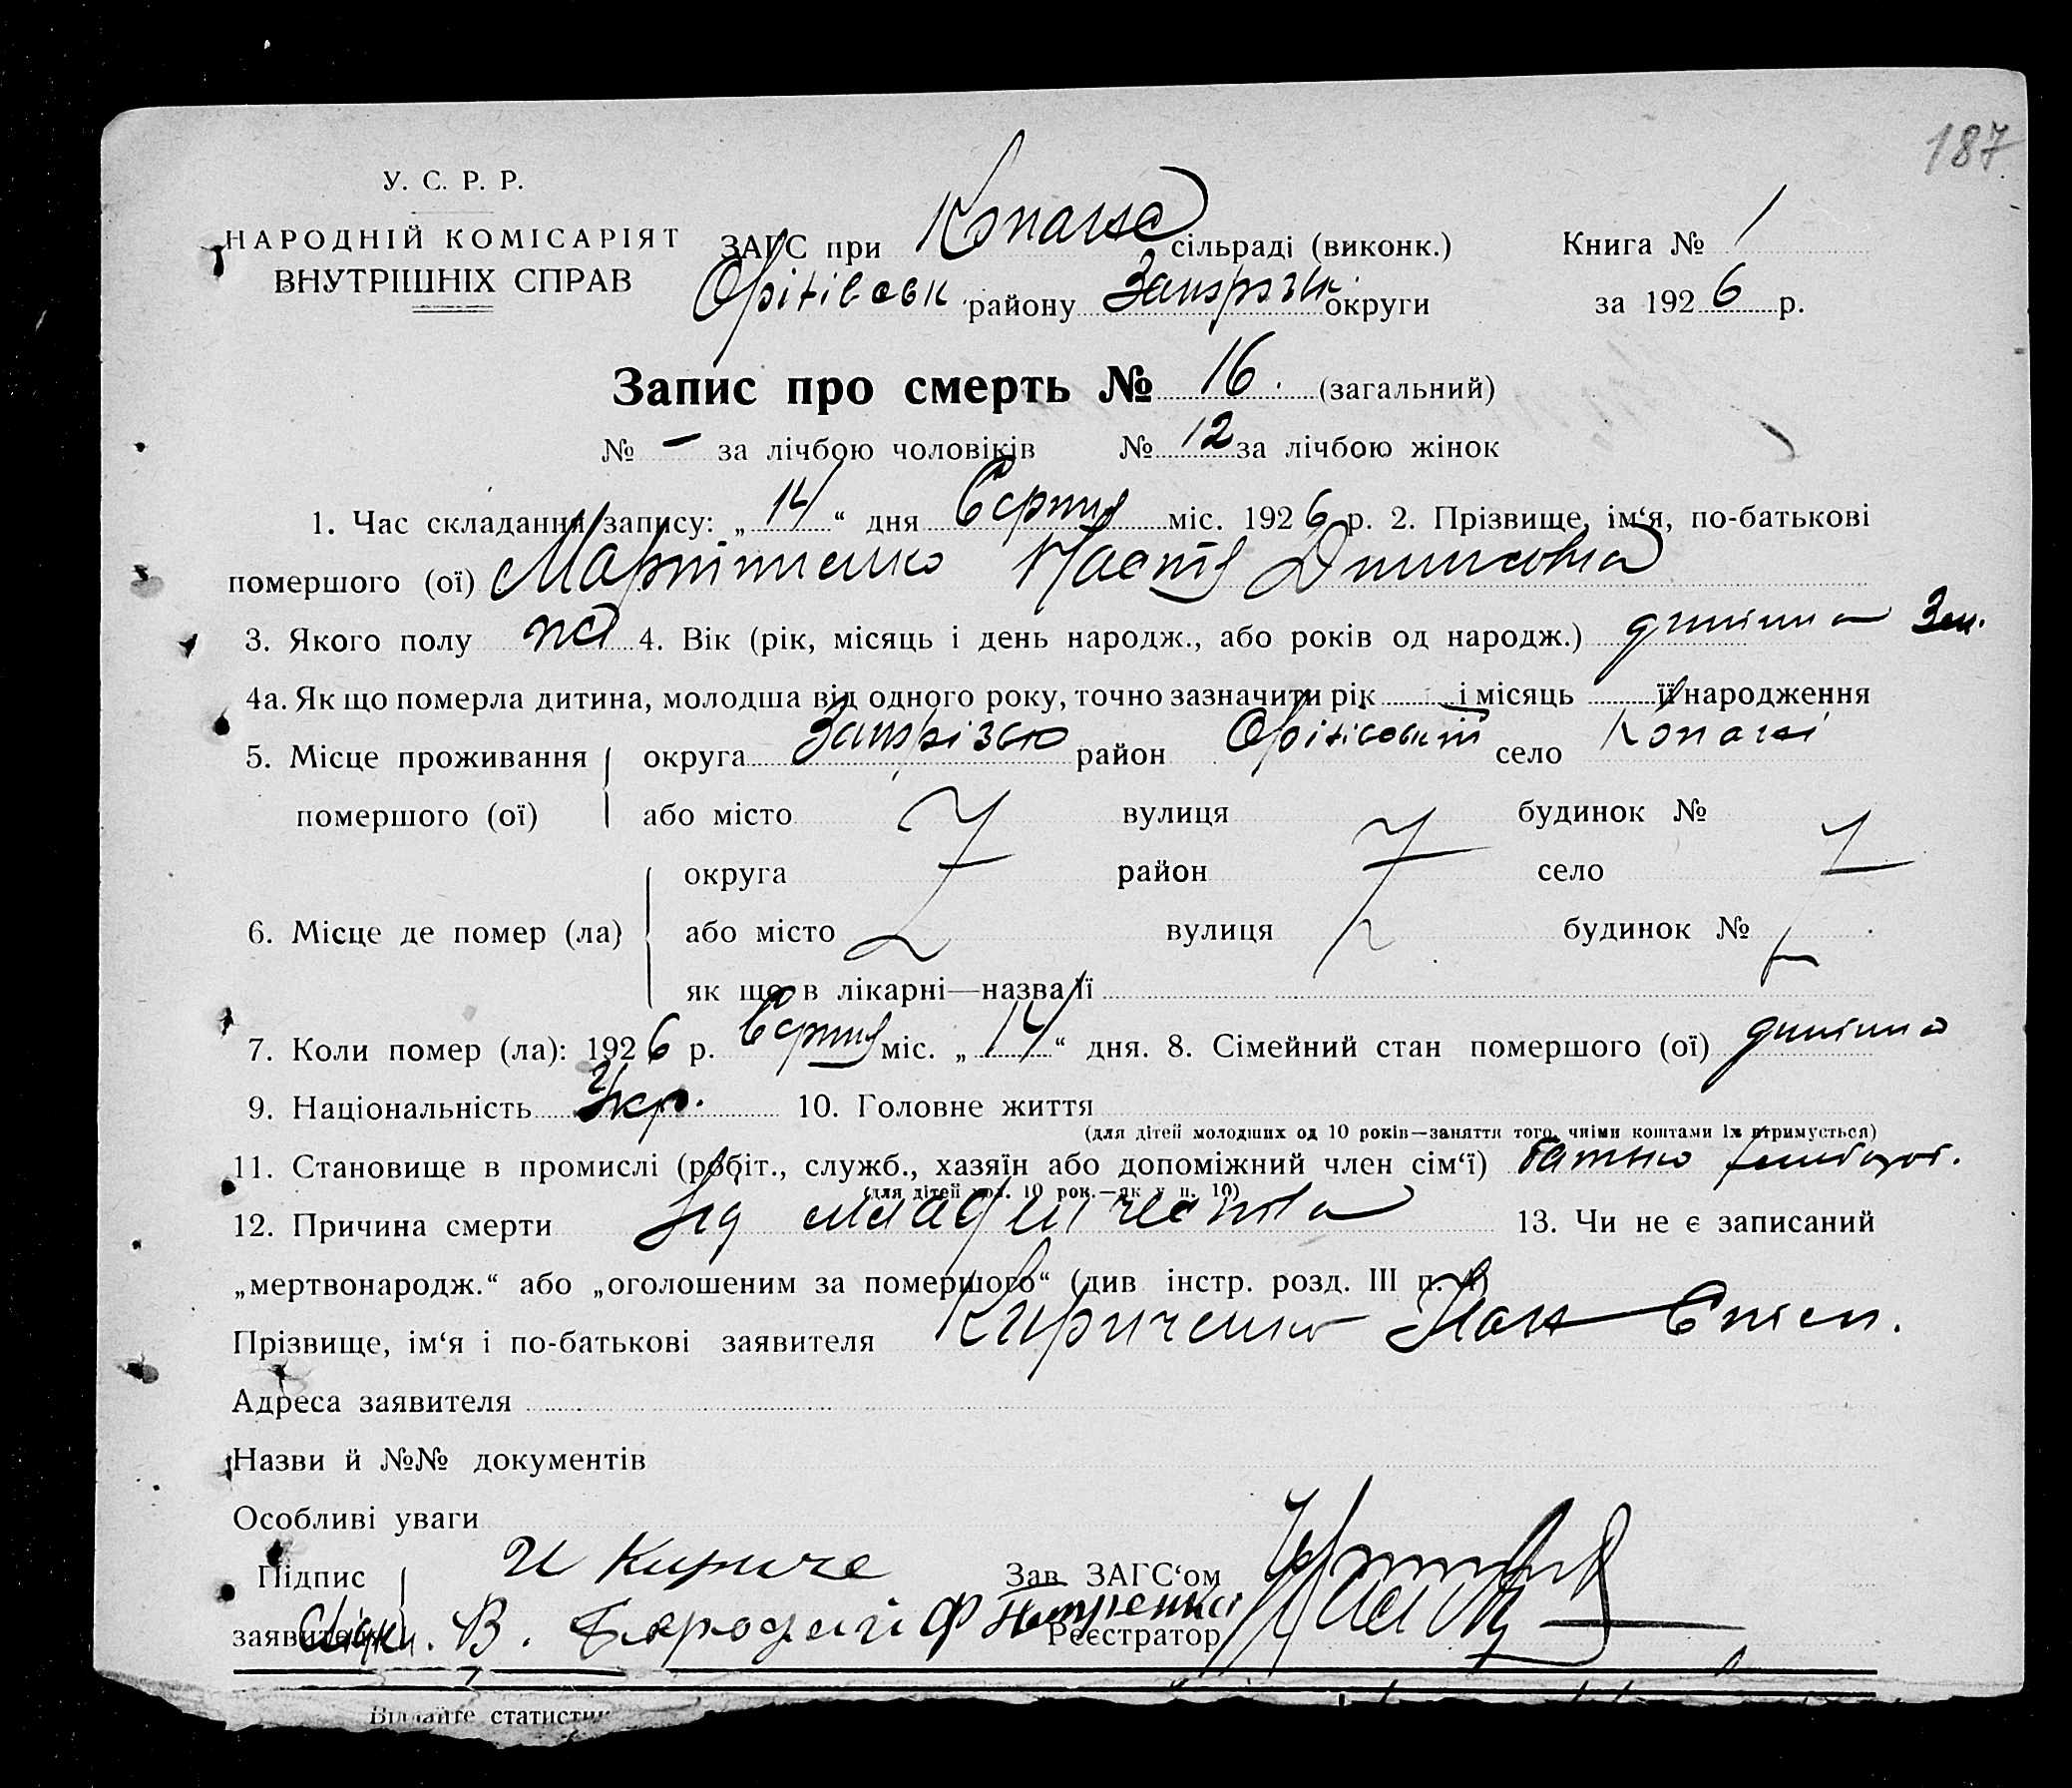 187
У. С. Р. Р.
НАРОДНІЙ КОМІСАРІЯТ
ВНУТРІШНІХ СПРАВ
ЗАГС при Копанс сільраді (виконк.)
Книга № 1
Оріхівськ району Запоріжк округи
за 1926 р.
Запис про смерть № 16. (загальний)
№ – за лічбою чоловіків № 12 за лічбою жінок
1. Час складання запису: „14“ дня Серпня міс. 1926 р. 2. Прізвище, ім‘я, по-батькові
помершого (ої) Мартиненко Настя Денисовна
3. Якого полу 4. Вік (рік, місяць і день народж., або років од народж.) дитина
4а. Як що померла дитина, молодша від одного року, точно зазначити рік і місяць її народження
5. Місце проживання округа район Оріхівський село Копані
помершого (ої) або місто вулиця будинок №
округа район село
6. Місце де помер (ла) або місто вулиця будинок №
як що в лікарні—назва її
7. Коли помер (ла): 1926 р. Серпня міс. „14“ дня. 8. Сімейний стан помершого (ої) дитина
9. Національність Укр. 10. Головне життя
(для дітей молодших од 10 років—заняття того, чиїми коштами їх втримується)
11. Становище в промислі (робіт., служб., хазяїн або допоміжний член сім‘ї) батько хлібороб.
(для дітей мол. 10 рок.—як у п. 10)
12. Причина смерти Від младенчества 13. Чи не є записаний
„мертвонародж.“ або „оголошеним за помершого“ (див інстр. розд. III п. 4)
Прізвище, ім‘я і по-батькові заявителя Кириченко Іван
Адреса заявителя
Назви й №№ документів
Особливі уваги
Підпис И Кириче Зав ЗАГС‘ом
заявителя Свідки. В. Бородай Ф Петренко Реєстратор
Віддайте статисти